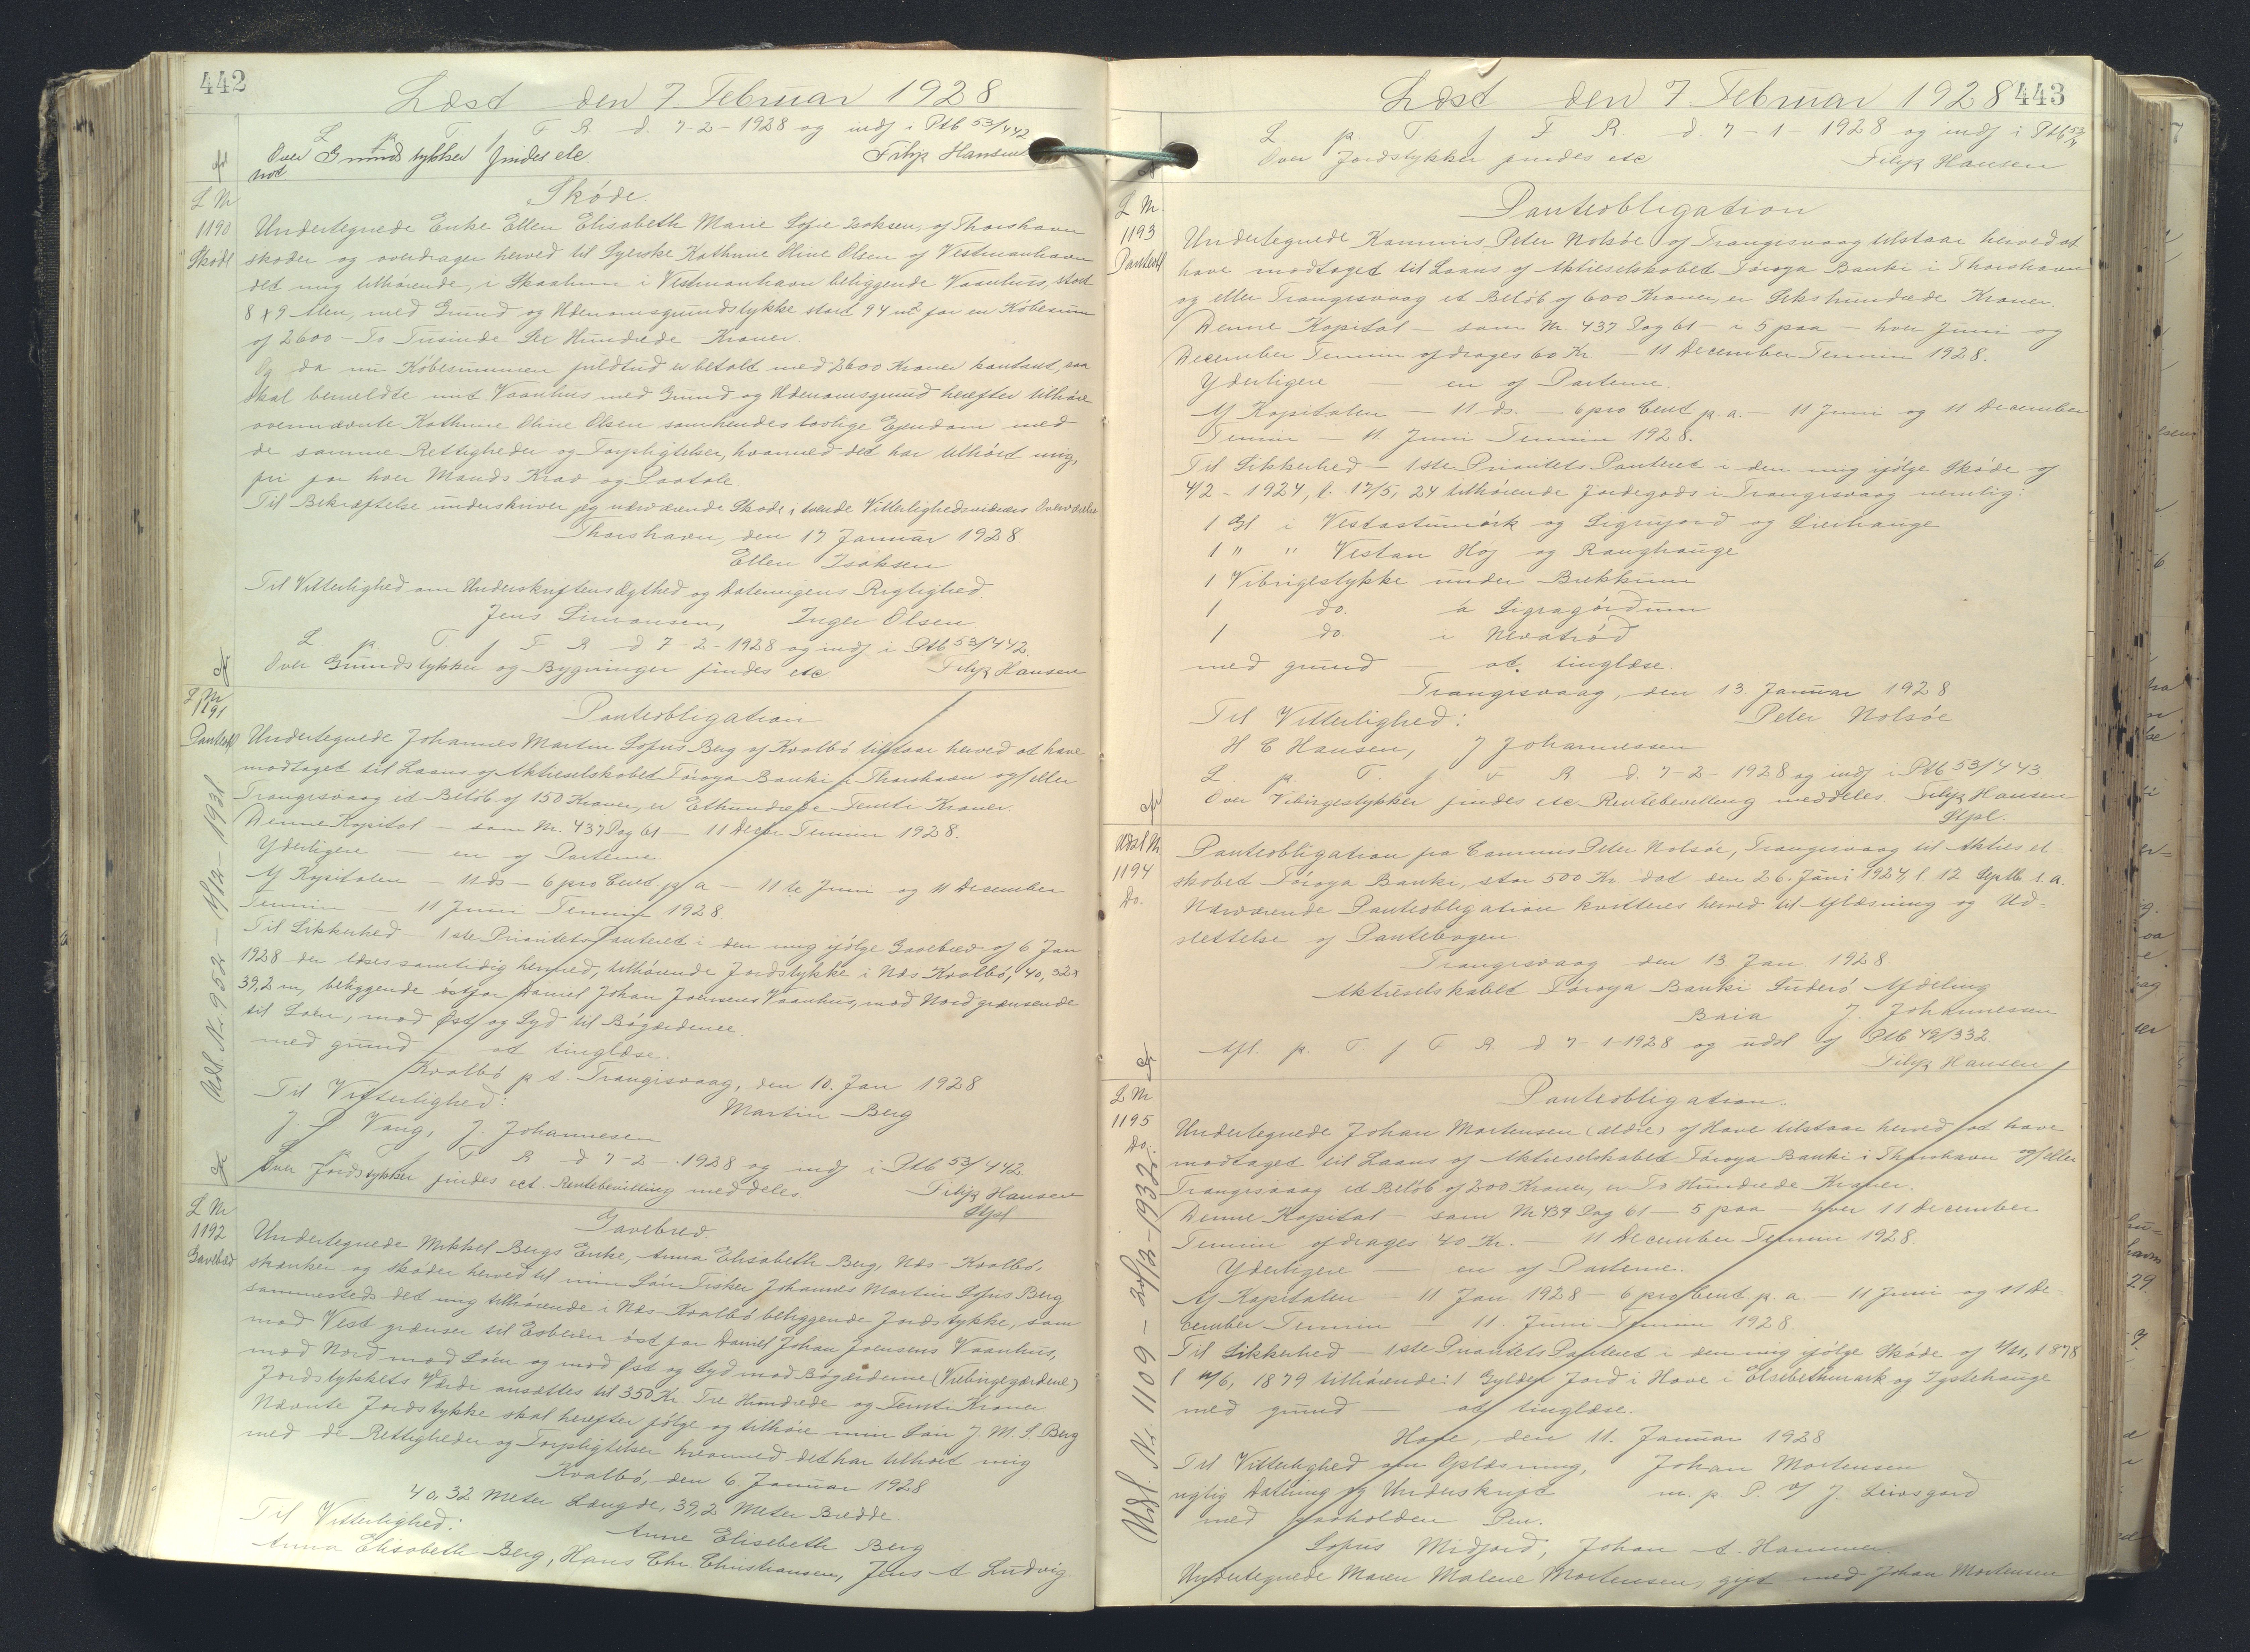 442
Læst den 7 Februar 1928
L p T f F R d. 7-2-1928 og indf i Ptb 53/442
Over Grundstykker findes etc Filip Hansen
Skøde.
L Nr
1190
Skøde
Undertegnede Enke Ellen Elisabeth Marie Sofie Isaksen, af Thorshavn
skøder og overdrager herved til Syerske Kathrine Oline Olsen af Vestmanhavn
det mig tilhørende, i Skaalum i Vestmanhavn beliggende Vaanhus, stort
8 x 9 Alen, med Grund og Udenomsgrundstykke stort 94 m2 for en Købesum
af 2600 - To Tusinde Sex Hundrede - Kroner.
Og da nu Købesummen fuldtud er betalt med 2600 Kroner kontant, saa
skal bemeldte mit Vaanhus med Grund og Udenomsgrund herefter tilhøre
ovennævnte Kathrine Oline Olsen som hendes lovlige Ejendom med
de samme Rettigheder og Forpligtelser, hvormed det har tilhørt mig,
fri for hver Mands Krav og Paatale
Til Bekræftelse underskriver jeg nærværende Skøde i tvende Vitterlighedsvidners Overværelse
Thorshavn, den 17 Januar 1928
Ellen Isaksen
Til Vitterlighed om Underskriftens Ægthed og Dateringens Rigtighed.
Jens Simonsen, Inger Olsen
L p T f F R d 7-2-1928 og indf i Ptb 53/442.
Over Grundstykker og Bygninger findes etc Filip Hansen
L Nr
1191
Panteobl
Panteobligation
Undertegnede Johannes Martin Sofus Berg af Kvalbø tilstaar herved at have
modtaget til Laans af Aktieselskabet Føroya Banki i Thorshavn og/eller
Trangisvaag et Beløb af 150 Kroner, er Ethundrede Femti Kroner.
Denne Kapital - som Nr. 437 Pag 61 - 11 Decbr Termin 1928.
Yderligere - en af Parterne
Af Kapitalen - 11 ds - 6 pro Cent p a - 11te Juni og 11 December
Termin - 11 Juni Termin 1928.
Til Sikkerhed - 1ste Prioritets Panteret i den mig ifølge Gavebrev af 6 Jan
1928 der læses samtidig hermed, tilhørende Jordstykke i Næs Kvalbø, 40,32 x
39,2 m, beliggende østfor Daniel Johan Joensens Vaanhus, mod Nord grænsende
til Søen, mod Øst og Syd til Bøgærderne.
med grund - at tinglæse.
Kvalbø p t. Trangisvaag, den 10. Jan 1928
Til Vitterlighed: Martin Berg
J. P Vang, J. Johannesen
L p T f F R d 7-2-1928 og indf i Ptb 53/442
Over Jordstykker findes ect. Rentebevilling meddeles Filip Hansen
Stpl
Udsl. Nr. 952 - 19/12-1931
L Nr
1192
Gavebrev
Gavebrev.
Undertegnede Mikkel Bergs Enke, Anna Elisabeth Berg, Næs - Kvalbø,
skænker og skøder herved til min Søn Fisker Johannes Martin Sofus Berg
sammesteds det mig tilhørende i Næs-Kvalbø beliggende Jordstykke, som
mod Vest grænser til Esberen øst for Daniel Johan Joensens Vaanhus,
mod Nord mod Søen og mod Øst og Syd mod Bøgærderne (Viebingegærdene)
Jordstykkets Værdi ansættes til 350 Kr. Tre Hundrede og Femti Kroner.
Nævnte Jordstykke skal herefter følge og tilhøre min Søn J. M. S. Berg
med de Rettigheder og Forpligtelser hvormed det har tilhørt mig
Kvalbø, den 6 Januar 1928
40,32 Meter Længde, 39,2 Meter Bredde.
Til Vitterlighed: Anne Elisebeth Berg
Anna Elisabeth Berg, Hans Chr. Christiansen, Jens A Ludvig.
443
Læst den 7 Februar 1928
L p. T. f F R. d. 7-1-1928 og indf i Ptb 53/
Over Jordstykker findes etc Filip Hansen
L Nr.
1193
Panteobl
Panteobligation
Undertegnede Kommis Peter Nolsøe af Trangisvaag tilstaar herved at
have modtaget til Laans af Aktieselskabet Føroya Banki i Thorshavn
og eller Trangisvaag et Beløb af 600 Kroner, er Sekshundrede Kroner.
Denne Kapital - som Nr. 437 Pag 61 - i 5 paa - hver Juni og
December Termin afdrages 60 Kr - 11 December Termin 1928.
Yderligere - en af Parterne.
Af Kapitalen - 11 ds. - 6 pro Cent p. a. - 11 Juni og 11 December
Termin - 11 Juni Termin 1928.
Til Sikkerhed - 1ste Prioritets Panteret i den mig ifølge Skøde af
4/2 - 1924, l. 17/5, 24 tilhørende Jordegods i Trangisvaag nemlig:
1 Gl i Vestastumørk og Sigrujord og Lierhauge
1 " " Vestan Høj og Ranghauge
1 Vibrigestykke under Brekkum
1 do. á Sigragørdum
1 do. i Nevatrød
med grund - at tinglæse.
Trangisvaag, den 13. Januar 1928
Til Vitterlighed: Peter Nolsøe
H C Hansen, J Johannessen
L. p. T. f F R d. 7-2-1928 og indf i Ptb 53/443.
Over Vibingestykker findes etc Rentebevilling meddeles. Filip Hansen
Stpl.
Udsl Nr
1194
Do.
Panteobligation fra Commis Peter Nolsøe, Trangisvaag til Aktiesel-
skabet Føroya Banki, stor 500 Kr dat den 26. Juni 1924, l. 12 Septbr s. a.
Nærværende Panteobligation kvitteres herved til Aflæsning og Ud-
slettelse af Pantebogen
Trangisvaag den 13 Jan 1928.
Aktieselskabet Føroya Banki Suderø Afdeling
Baia J. Johannessen
Afl. p. T f F R. d 7-1-1928 og udsl af Ptb 49/332
Filip Hansen
L Nr
1195
Do.
Panteobligation.
Undertegnede Johan Mortensen (ældre) af Hove tilstaar herved at have
modtaget til Laans af Aktieselskabet Føroya Banki i Thorshavn og/eller
Trangisvaag et Beløb af 200 Kroner, er To Hundrede Kroner.
Denne Kapital - som Nr 439 Pag 61 - 5 paa - hver 11 December
Termin afdrages 40 Kr. - 11 December Termin 1928.
Yderligere - en af Parterne.
Af Kapitalen - 11 Jan 1928 - 6 pro Cent p. a. - 11 Juni og 11 De-
cember Termin - 11. Juni Termin 1928.
Til Sikkerhed - 1ste Prioritets Panteret i den mig ifølge Skøde af 1878
1879 tilhørende: 1 Gylden Jord i Hove i Elsebethmark og Tystehauge
med grund - at tinglæse.
Hove, den 11. Januar 1928
Til Vitterlighed om Oplæsning, Johan Mortensen
rigtig Datering og Underskrift m. p P. af J. Leivsgard
med paaholden Pen.
Sofus Midjord, Johan A. Hammer.
Undertegnede Maren Malene Mortensen, gift med Johan Mortensen
Udsl. Nr. 1109 - 20/12-1932.